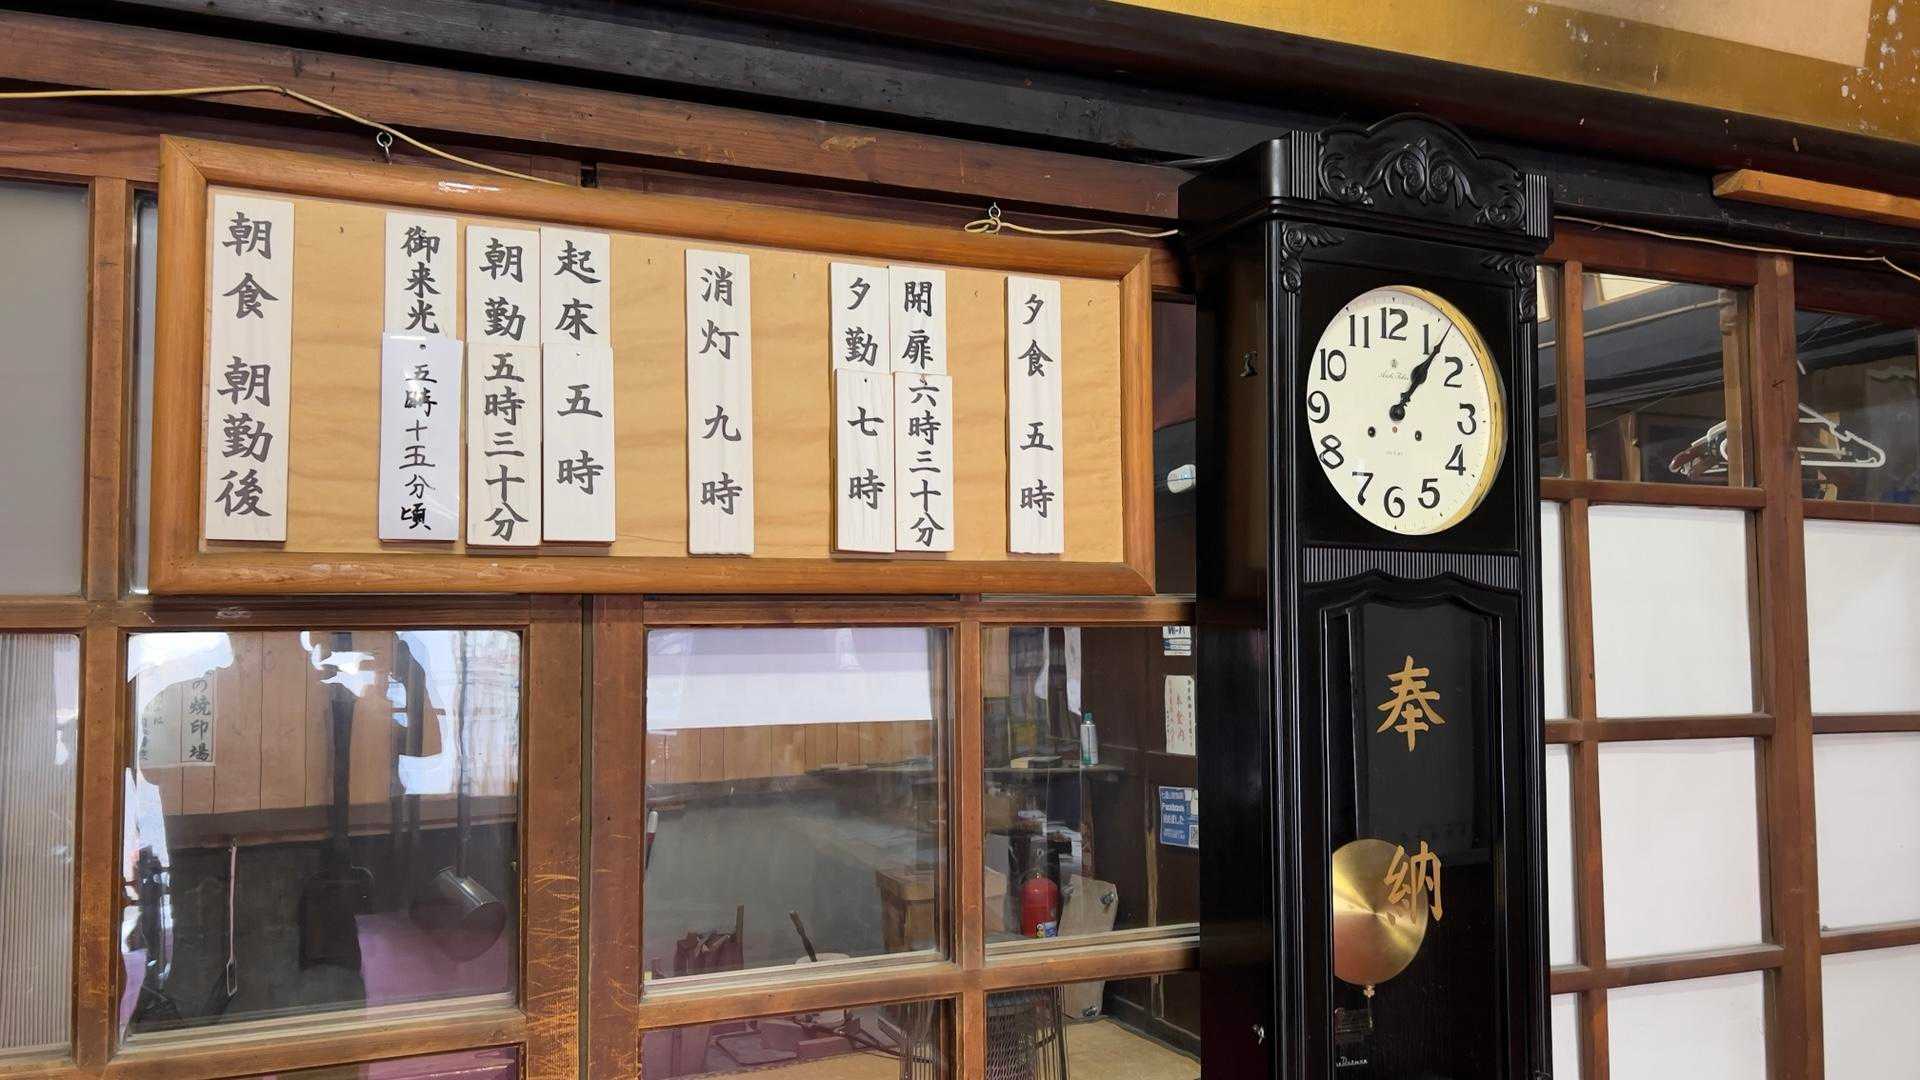 夕食 五時
開扉 六時三十分
夕勤 七時
消灯 九時
起床 五時
朝勤 五時三十分
御来光 五時十五分頃
朝食 朝勤後
12
1
2
3
4
5
6
7
8
9
10
11
奉納
の焼印場
Facebook
始めました